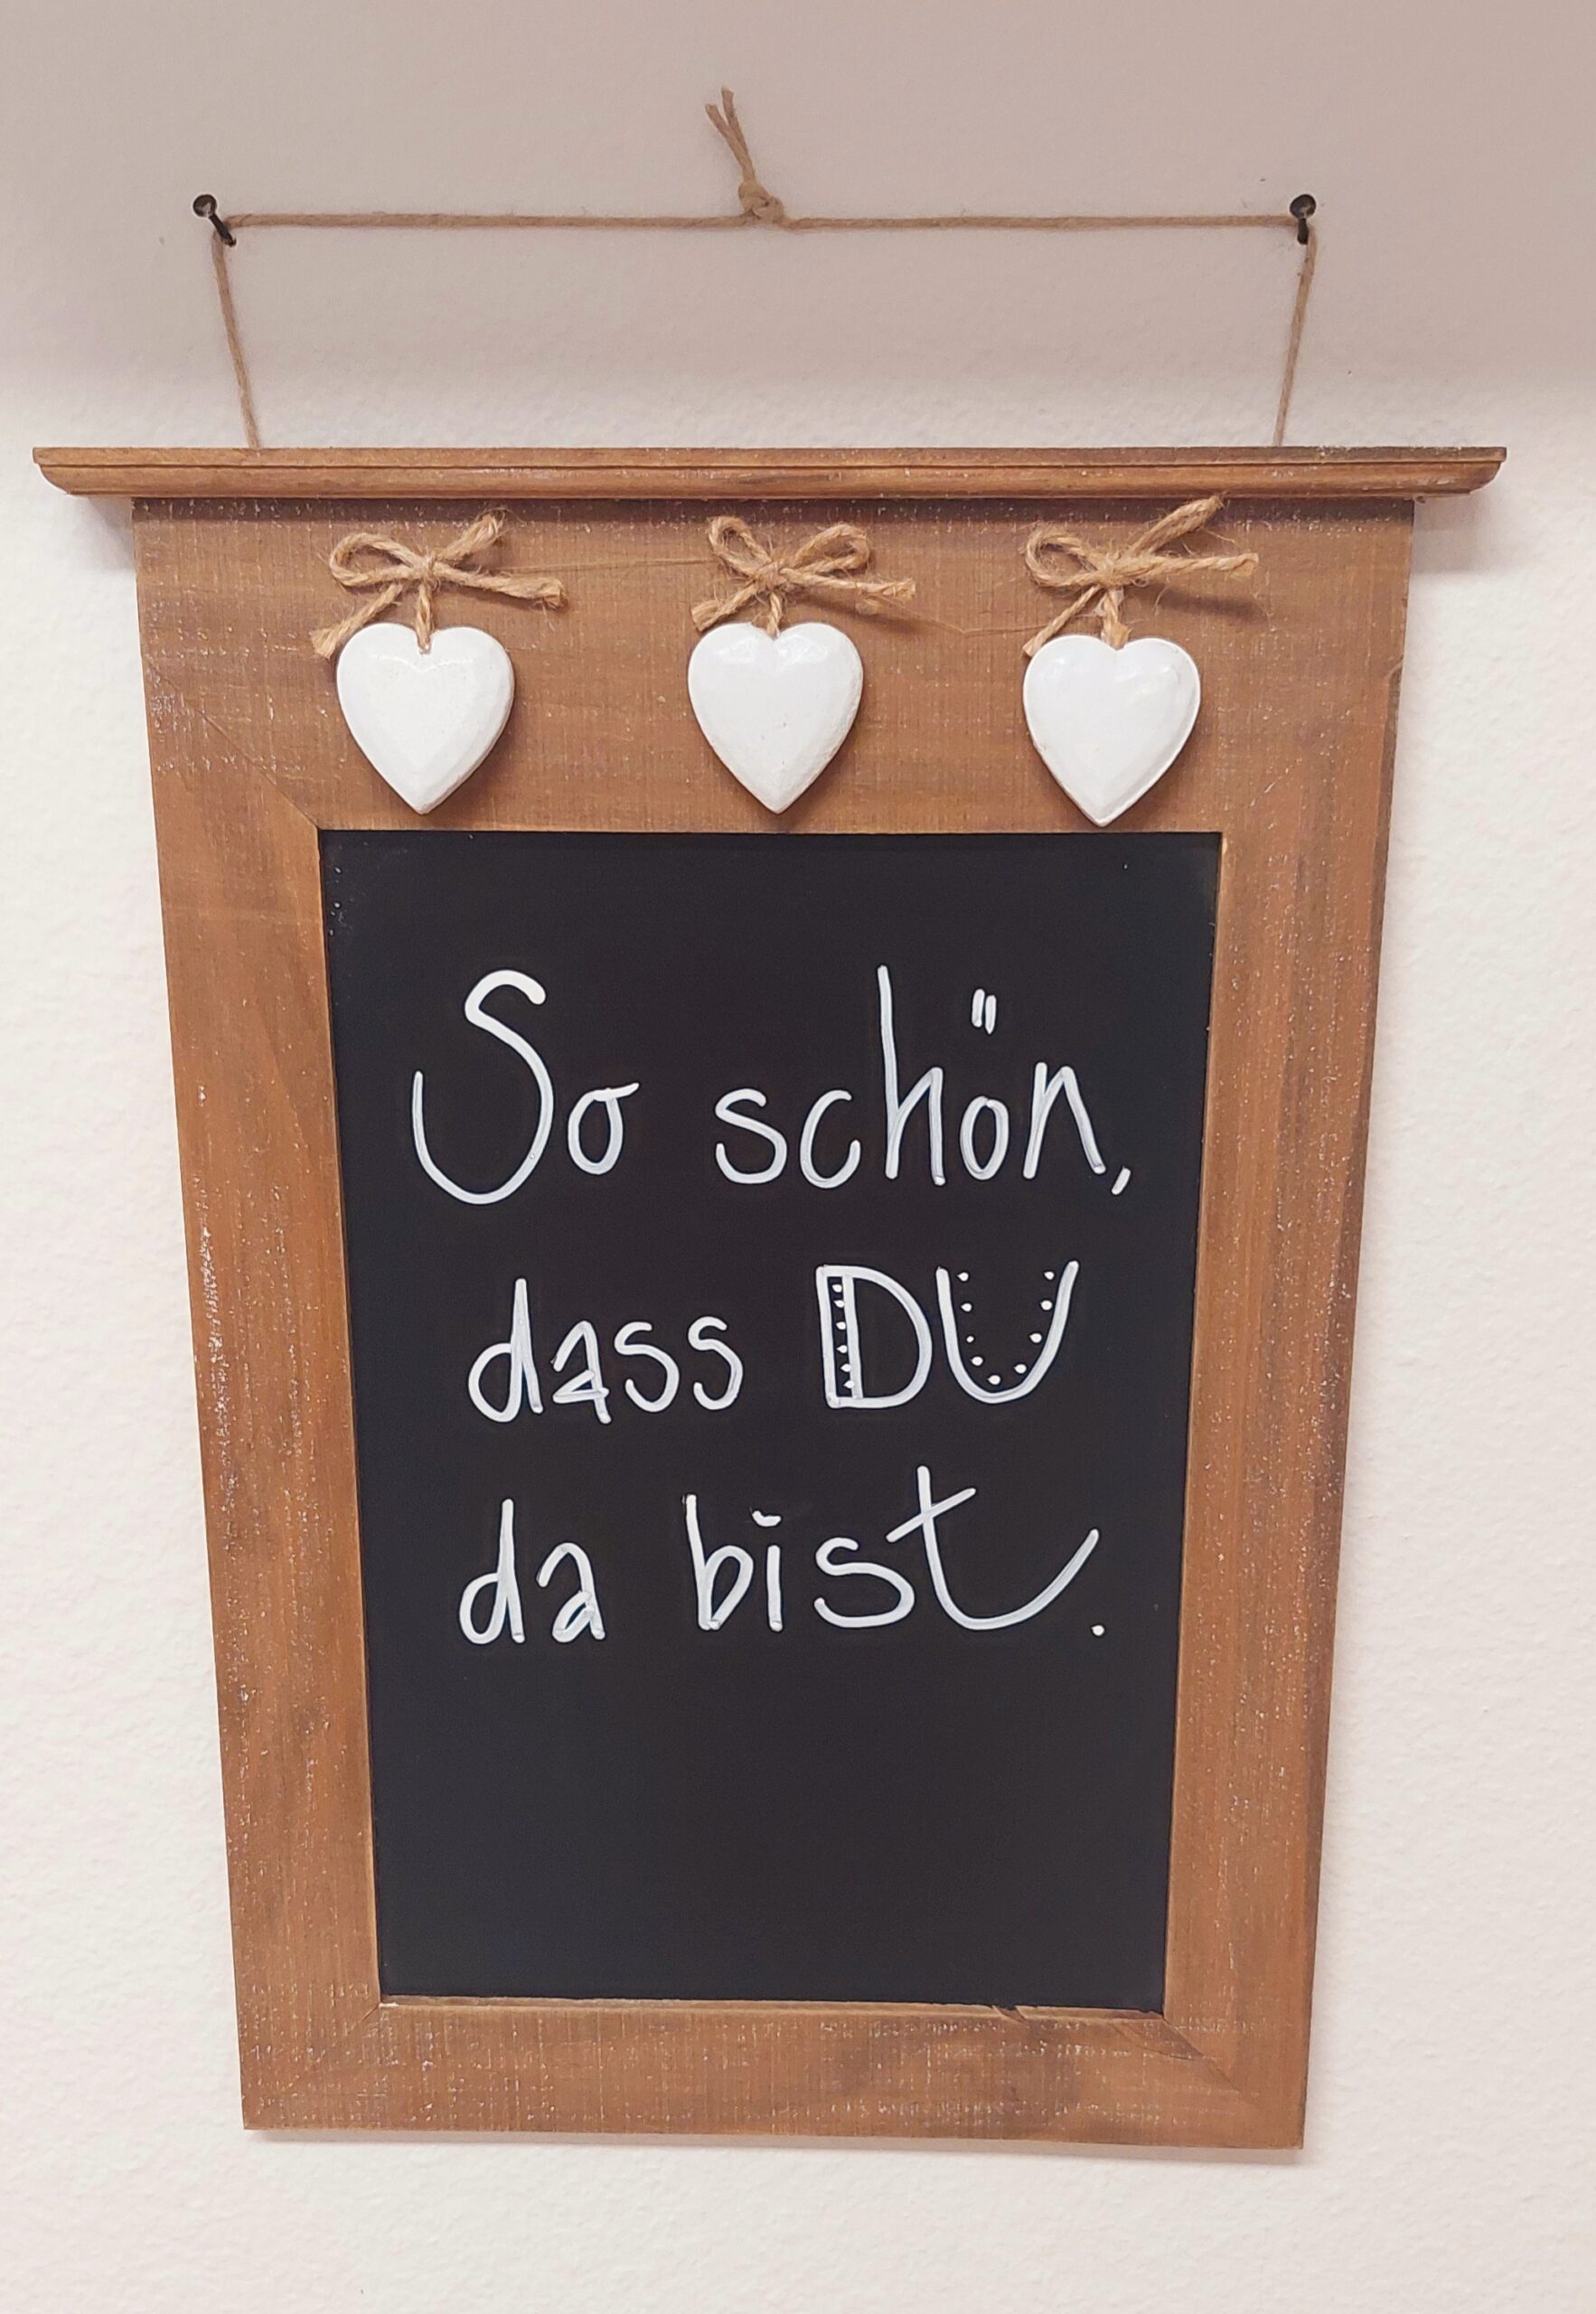 So schön,
dass DU
da bist.